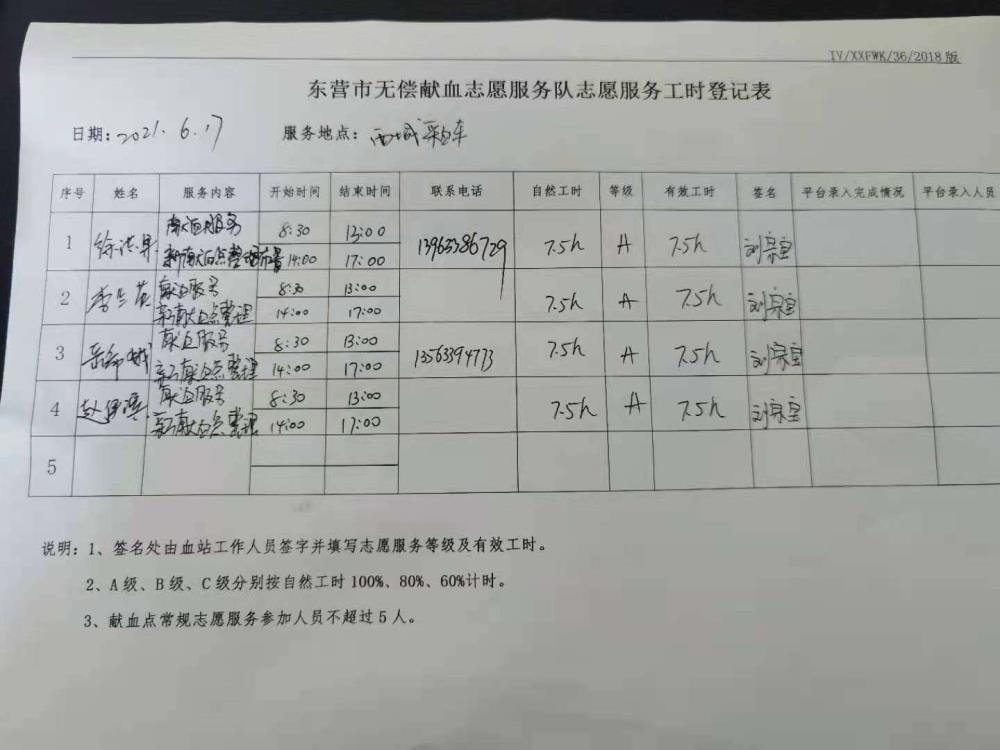 IV/XXFWK/36/2018版
东营市无偿献血志愿服务队志愿服务工时登记表
日期: 2021. 6. 17 服务地点: 西城采血车
序号 姓名 服务内容 开始时间 结束时间 联系电话 自然工时 等级 有效工时 签名 平台录入完成情况 平台录入人员
1 献血服务 8:30 13:00 13963386729 7.5h A 7.5h
14:00 17:00
2 献血服务 8:30 13:00 7.5h A 7.5h
献血点整理 14:00 17:00
3 献血服务 8:30 13:00 13563394773 7.5h A 7.5h
献血点整理 14:00 17:00
4 献血服务 8:30 13:00 7.5h A 7.5h
献血点整理 14:00 17:00
5
说明: 1、签名处由血站工作人员签字并填写志愿服务等级及有效工时。
2、A级、B级、C级分别按自然工时100%、80%、60%计时。
3、献血点常规志愿服务参加人员不超过5人。